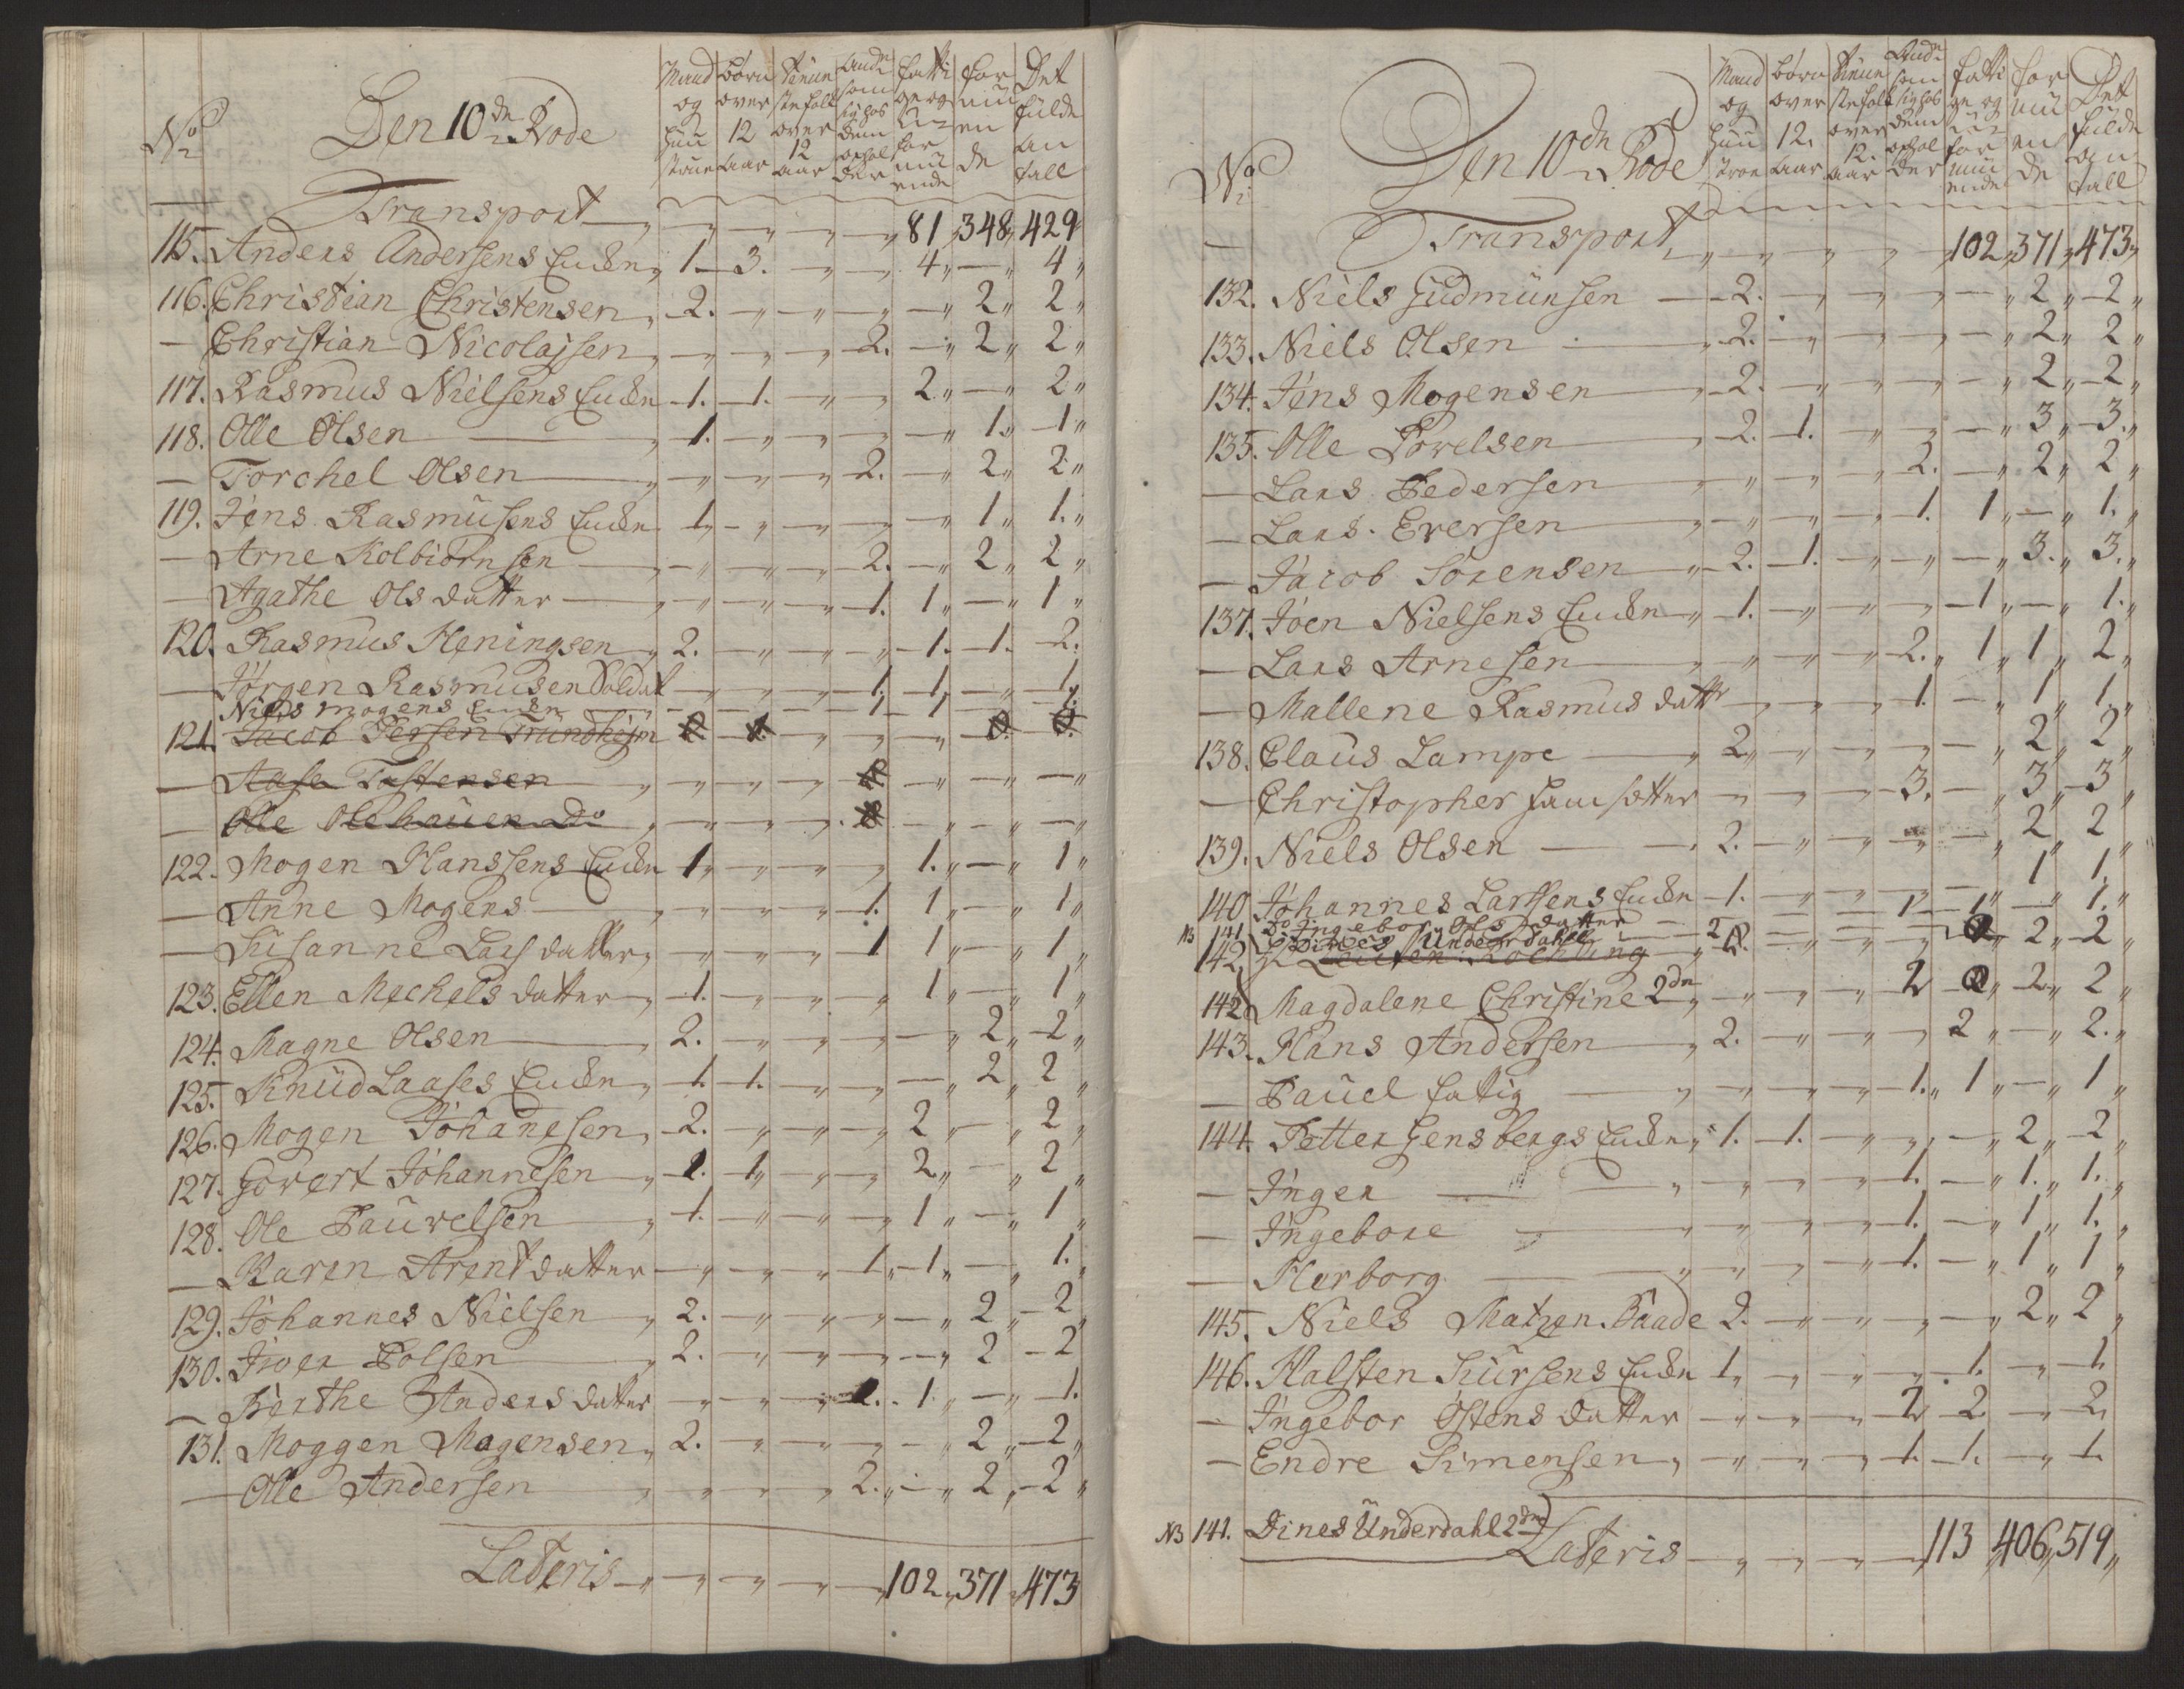 No
Den 10de Rode
Mand og Hüu strue
børn over 12 aar
tienne ste folk over 12 aar
Andre som sig hos dem ophol der
fatti ge og u for mu ende
for mu en de
Det fulde an tall
Transport 81 348 429
115. Anders Andersens Encken 1 3. 4 4
116. Christian Christensen 2. 2 2
— Christian Nicolajsen 2. 2 2
117. Rasmus Nielsens Encken 1. 1. 2 2
118. Olle Olsen 1. 1 1
— Torchel Olsen 2. 2 2
119. Jens Rasmusens Encken 1 1 1
— Arne Kolbiørnsen 2. 2 2
— Agathe Olsdatter 1. 1 1
120. Rasmus Heningsen 2. 1. 1. 2.
— Jørgen Rasmusen Soldat 1. 1 1
Niels Mogens Encken 1 1 1
121. Jacob Persen Trundhejm
— Aase Tostensen
— Olle Olehauer Do
122. Mogen Hanssens Encken 1 1. 1
— Anne Mogens 1. 1 1
— Susanne Lars datter 1 1 1
123. Ellen Mechels datter 1. 1 1
124. Magne Olsen 2. 2 2
125. Knüd Laases Encken 1. 1. 2 2
126. Mogen Johanesen 2. 2 2
127. Govert Johannesen 1. 1 2 2
128. Ole Paüvelsen 1. 1 1
— Karen Arentdatter 1 1 1.
129. Johannes Nielsen 2. 2 2
130. Iver Polsen 2. 2 2
— Berthe Andersdatter 1. 1. 1.
131. Moggen Magensen 2. 2 2
— Olle Andersen 2. 2 2
Lateris 102 371 473
No
Den 10de Rode
Mand og Hüu stroe
børn over 12. aar
tienne ste folk over 12. aar
Andre som sig hos dem ophol der
fatti ge og u for mu ende
for mu en de
Det fulde an tall
Transport 102 371 473
132. Niels Gudmünsen 2. 2 2
133. Niels Olsen 2. 2 2
134. Jens Mogensen 2. 2 2
135. Olle Povelsen 2. 1. 3 3
— Lars Pedersen 2. 2 2
— Lars Eversen 1. 1 1.
— Jacob Sørensen 2. 1. 3. 3.
137. Joen Nielsens Encken 1. 1 1.
— Lars Arnesen 2. 1 1 2
— Mallene Rasmus dattr 1. 1 1
138. Claus Lampe 2 2 2
— Christopher 3. 3 3
139. Niels Olsen 2. 2 2
140 Johannes Larssens Encken 1. 1 1
Do Ingebor Ols datter 1 1 1.
NB 141 Dines Underdahl 2 2 2
142
142 Magdalene Christine 2dn 2 2 2
143. Hans Andersen 2. 2 2.
— Pauel fattig 1. 1 1
144. Petter Jensbergs Encken 1. 1. 2 2
— Inger 1. 1. 1.
— Ingebore 1. 1 1.
— Herborg 1. 1 1
145. Niels Matzen Baade 2. 2 2
146. Halsten Siursens Encken 1 1. 1
— Ingebor Østens datter 2 2 2
— Endre Simensen 1. 1. 1.
NB 141. Dines Underdahl 2dn
Lateris 113 406 519